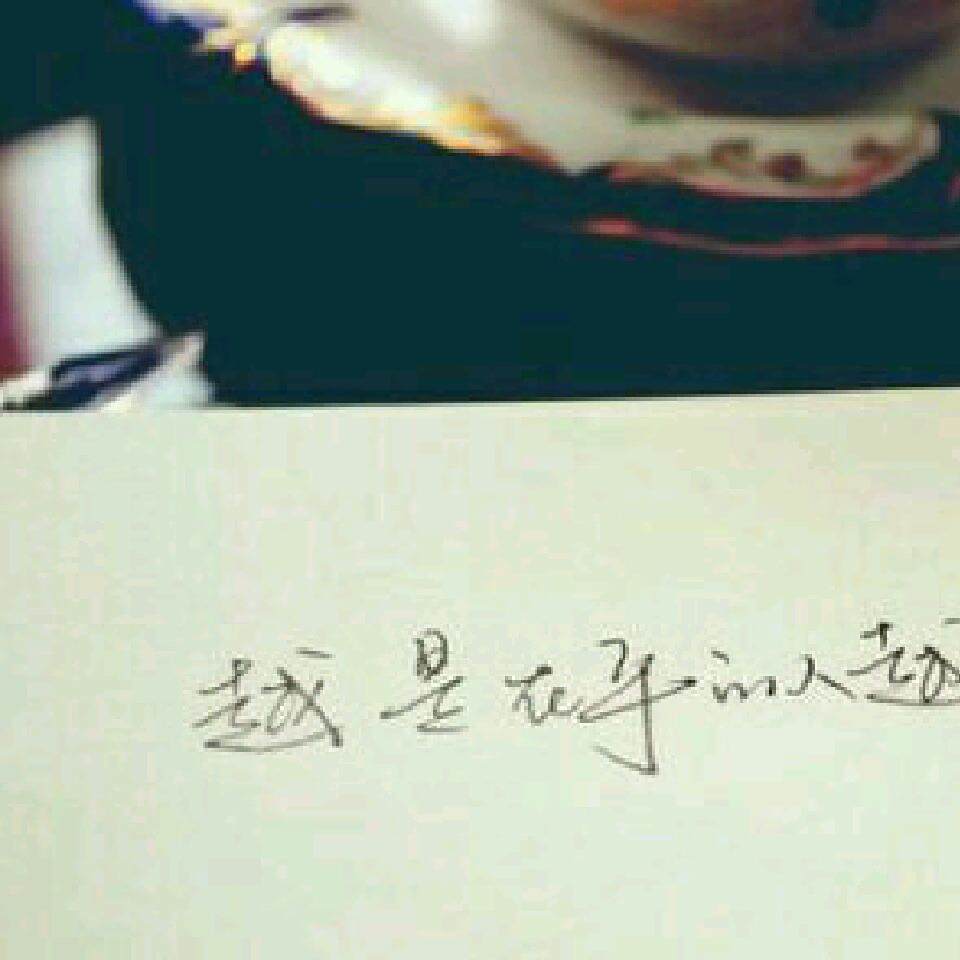 越是在乎的人越